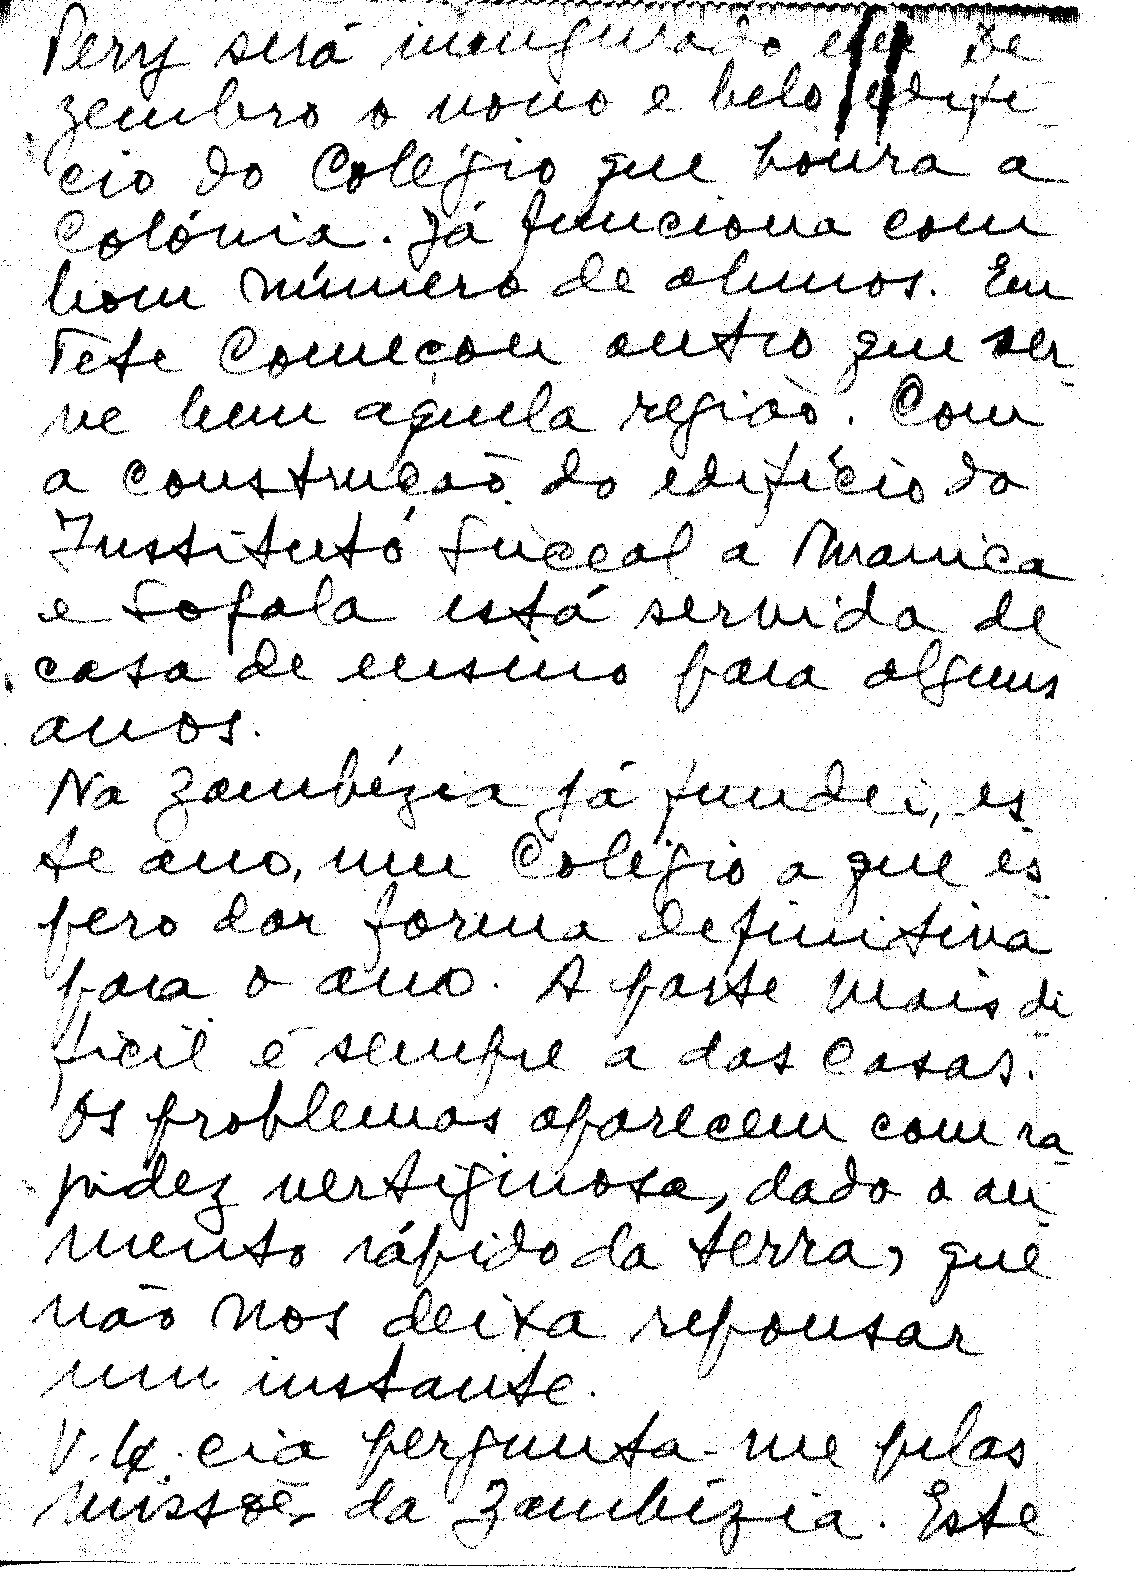 Pery será inaugurado em De
zembro o novo e belo edifí-
cio do Colégio que honra a
Colónia. Já funciona com
bom número de alunos. Em
Tete Começou outro que ser-
ve bem aquela região. Com
a construção do edifício do
Instituto Liceal a Manica
e Sofala está servida de
casa de ensino para alguns
anos.
Na Zambézia já fundei, es-
te ano, um Colégio a que es-
pero dar forma definitiva
para o ano. A parte mais di-
fícil é sempre a das casas.
Os problemas aparecem com ra-
pidez vertiginosa, dado o au-
mento rápido da terra, que
não nos deixa repousar
um instante.
V. Ex.cia pergunta-me pelas
Missões da Zambézia. Este